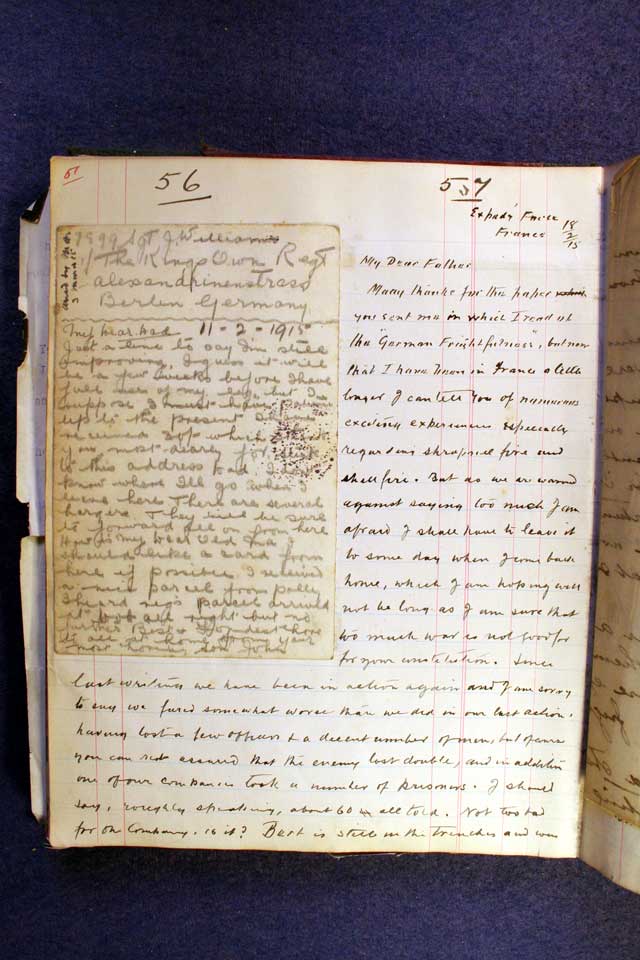 51
56
57
7899 Sgt J. Williams
1/ The Kings Own Regt
alexandrinenstrass
Berlin Germany
11-2-1915
Just a line to say I'm still
improving, I guess it will
be a few weeks before I have
full use of my leg, but I
suppose I must have
up to the present I have
received 30/- which
you most dearly for
to this address Dad I don't
know where I'll go when I
leave here There are several
They will be sure
to forward all on from here
How is my dear old Ma I
should like a card from
here if possible I received
a nice parcel from polly
I heard parcel arrived
all right but no
further
to all at home from your
most loving son John
Expedy Force
France 18/2/15
My Dear Father
Many thanks for the paper
you sent me in which I read of
the "German Frightfulness", but now
that I have been in France a little
longer I can tell you of numerous
exciting experiences especially
regarding shrapnell fire and
shell fire. But as we are warned
against saying too much I am
afraid I shall have to leave it
to some day when I come back
home, which I am hoping will
not be long as I am sure that
too much war is not good for
for your constitution. Since
last writing we have been in action again and I am sorry
to say we fared somewhat worse than we did in our last action,
having lost a few officers & a decent number of men, but of course
you can rest assured that the enemy lost double, and in addition
one of our companies took a number of prisoners. I should
say, roughly speaking, about 60 in all told. Not too bad
for one Company, is it? Bert is still in the trenches and was